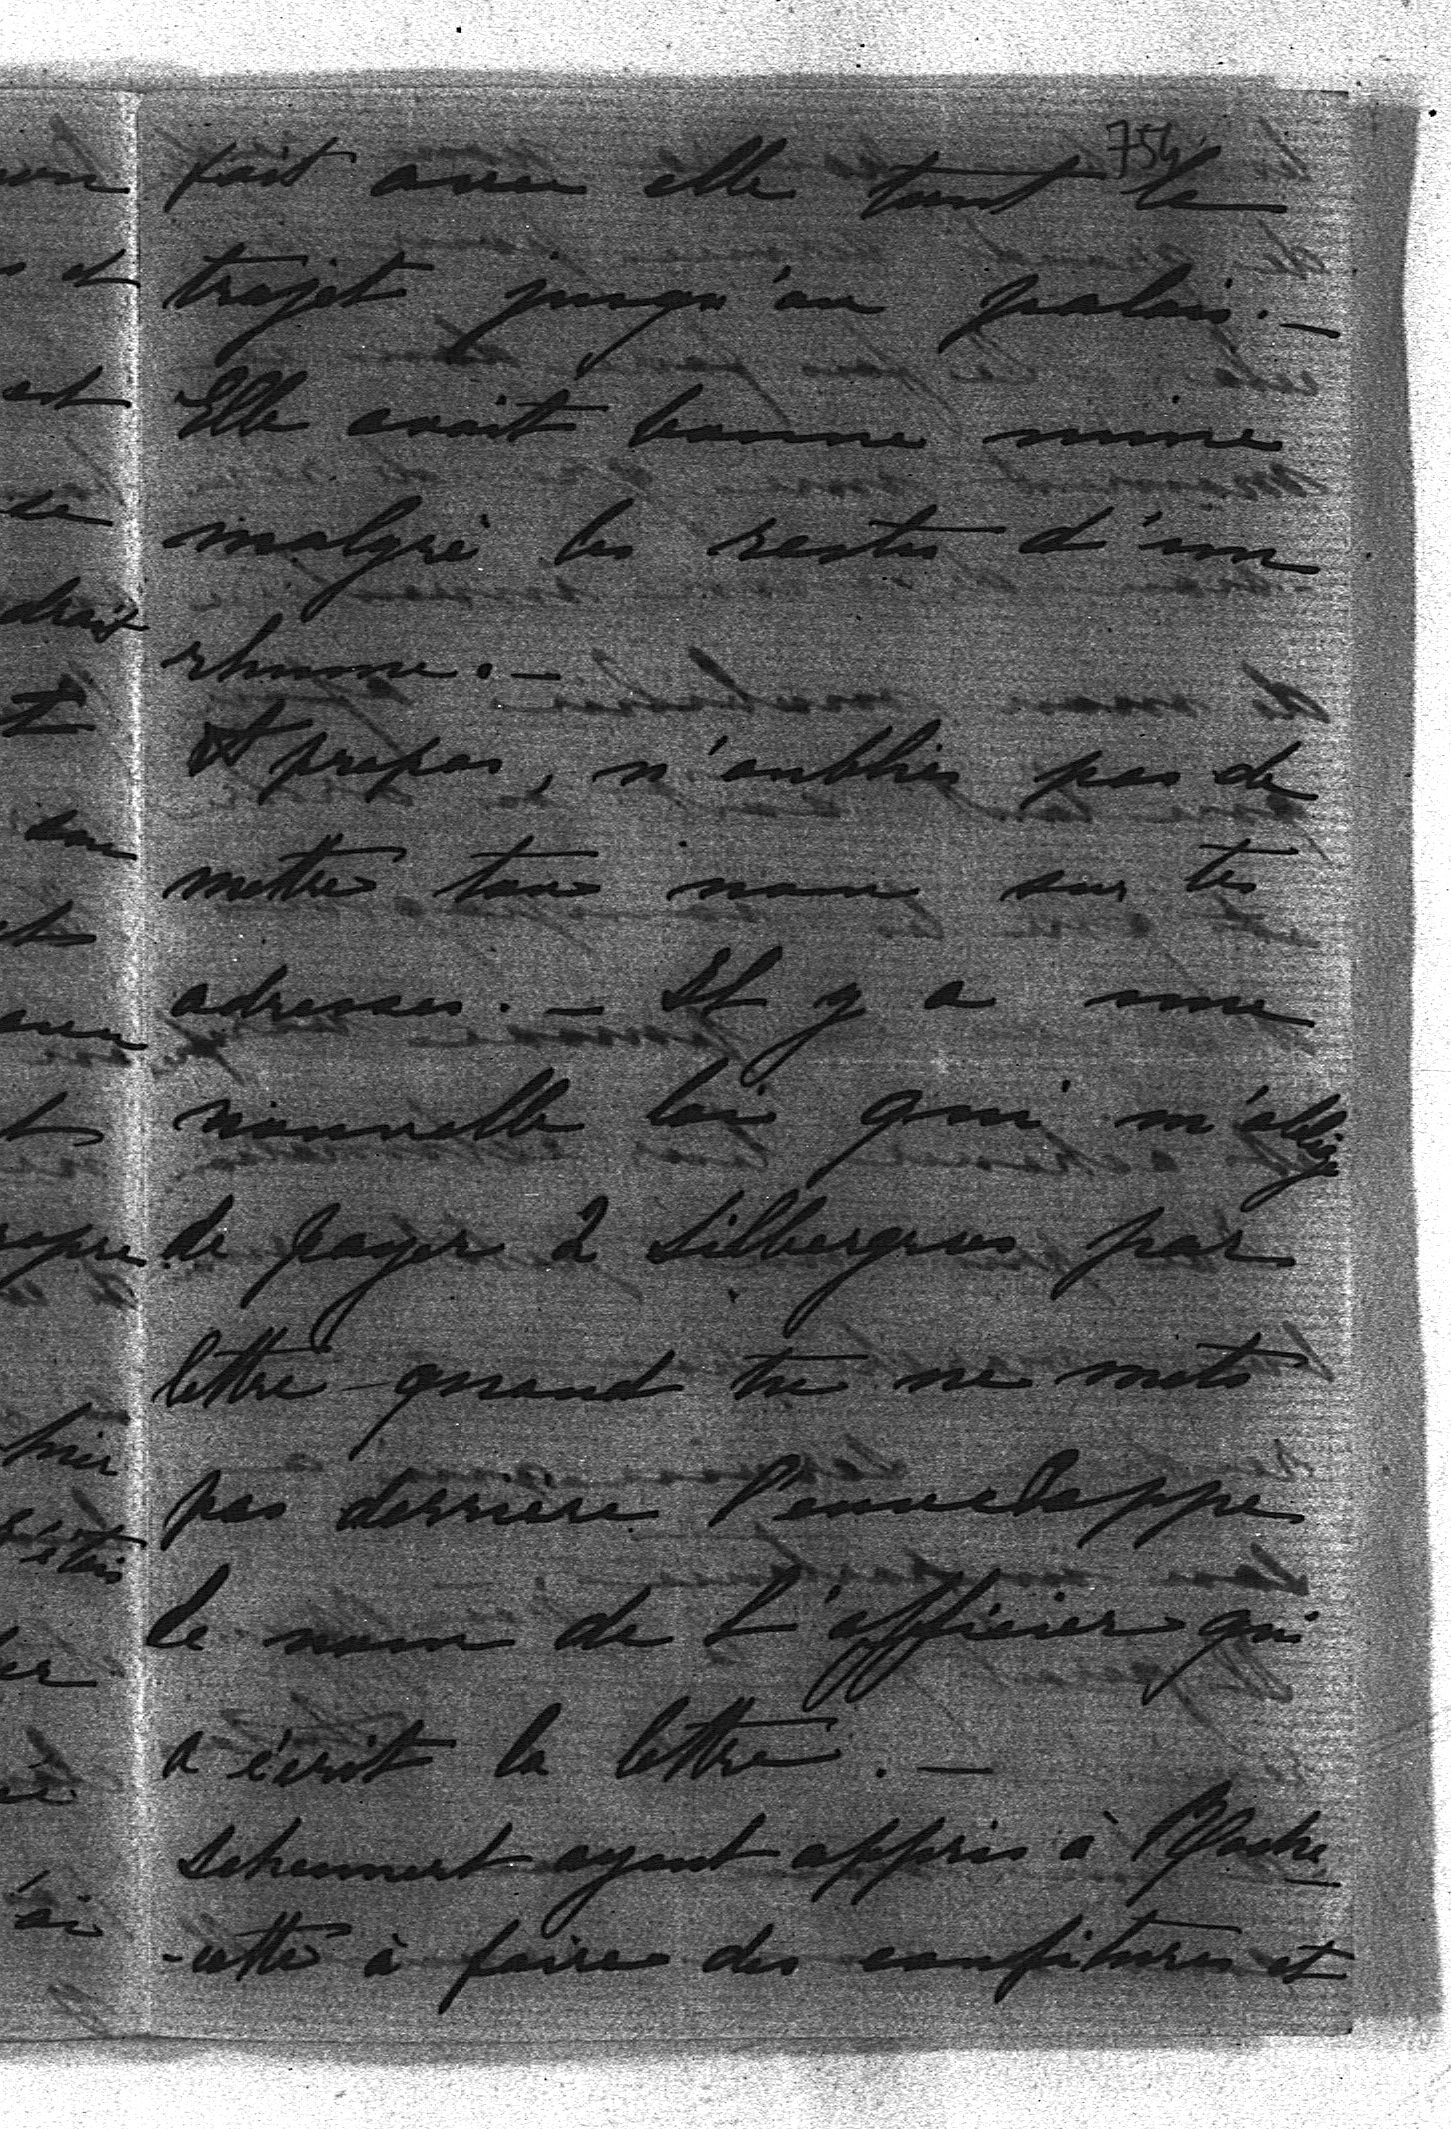 754
fait avec elle tout le
trajet jusqu'au palais. —
Elle avait bonne mine
malgré les restes d'un
rhume. —
A propos, n'oublies pas de
mettre ton nom sur tes
adresses. — Il y a une
nouvelle loi qui m'oblige
de payer 2 Silbergros par
lettre quand tu ne mets
pas derriere l'enveloppe
le nom de L'officier qui
a écrit la lettre. —
ayant appris à
-ette à faire des confitures et